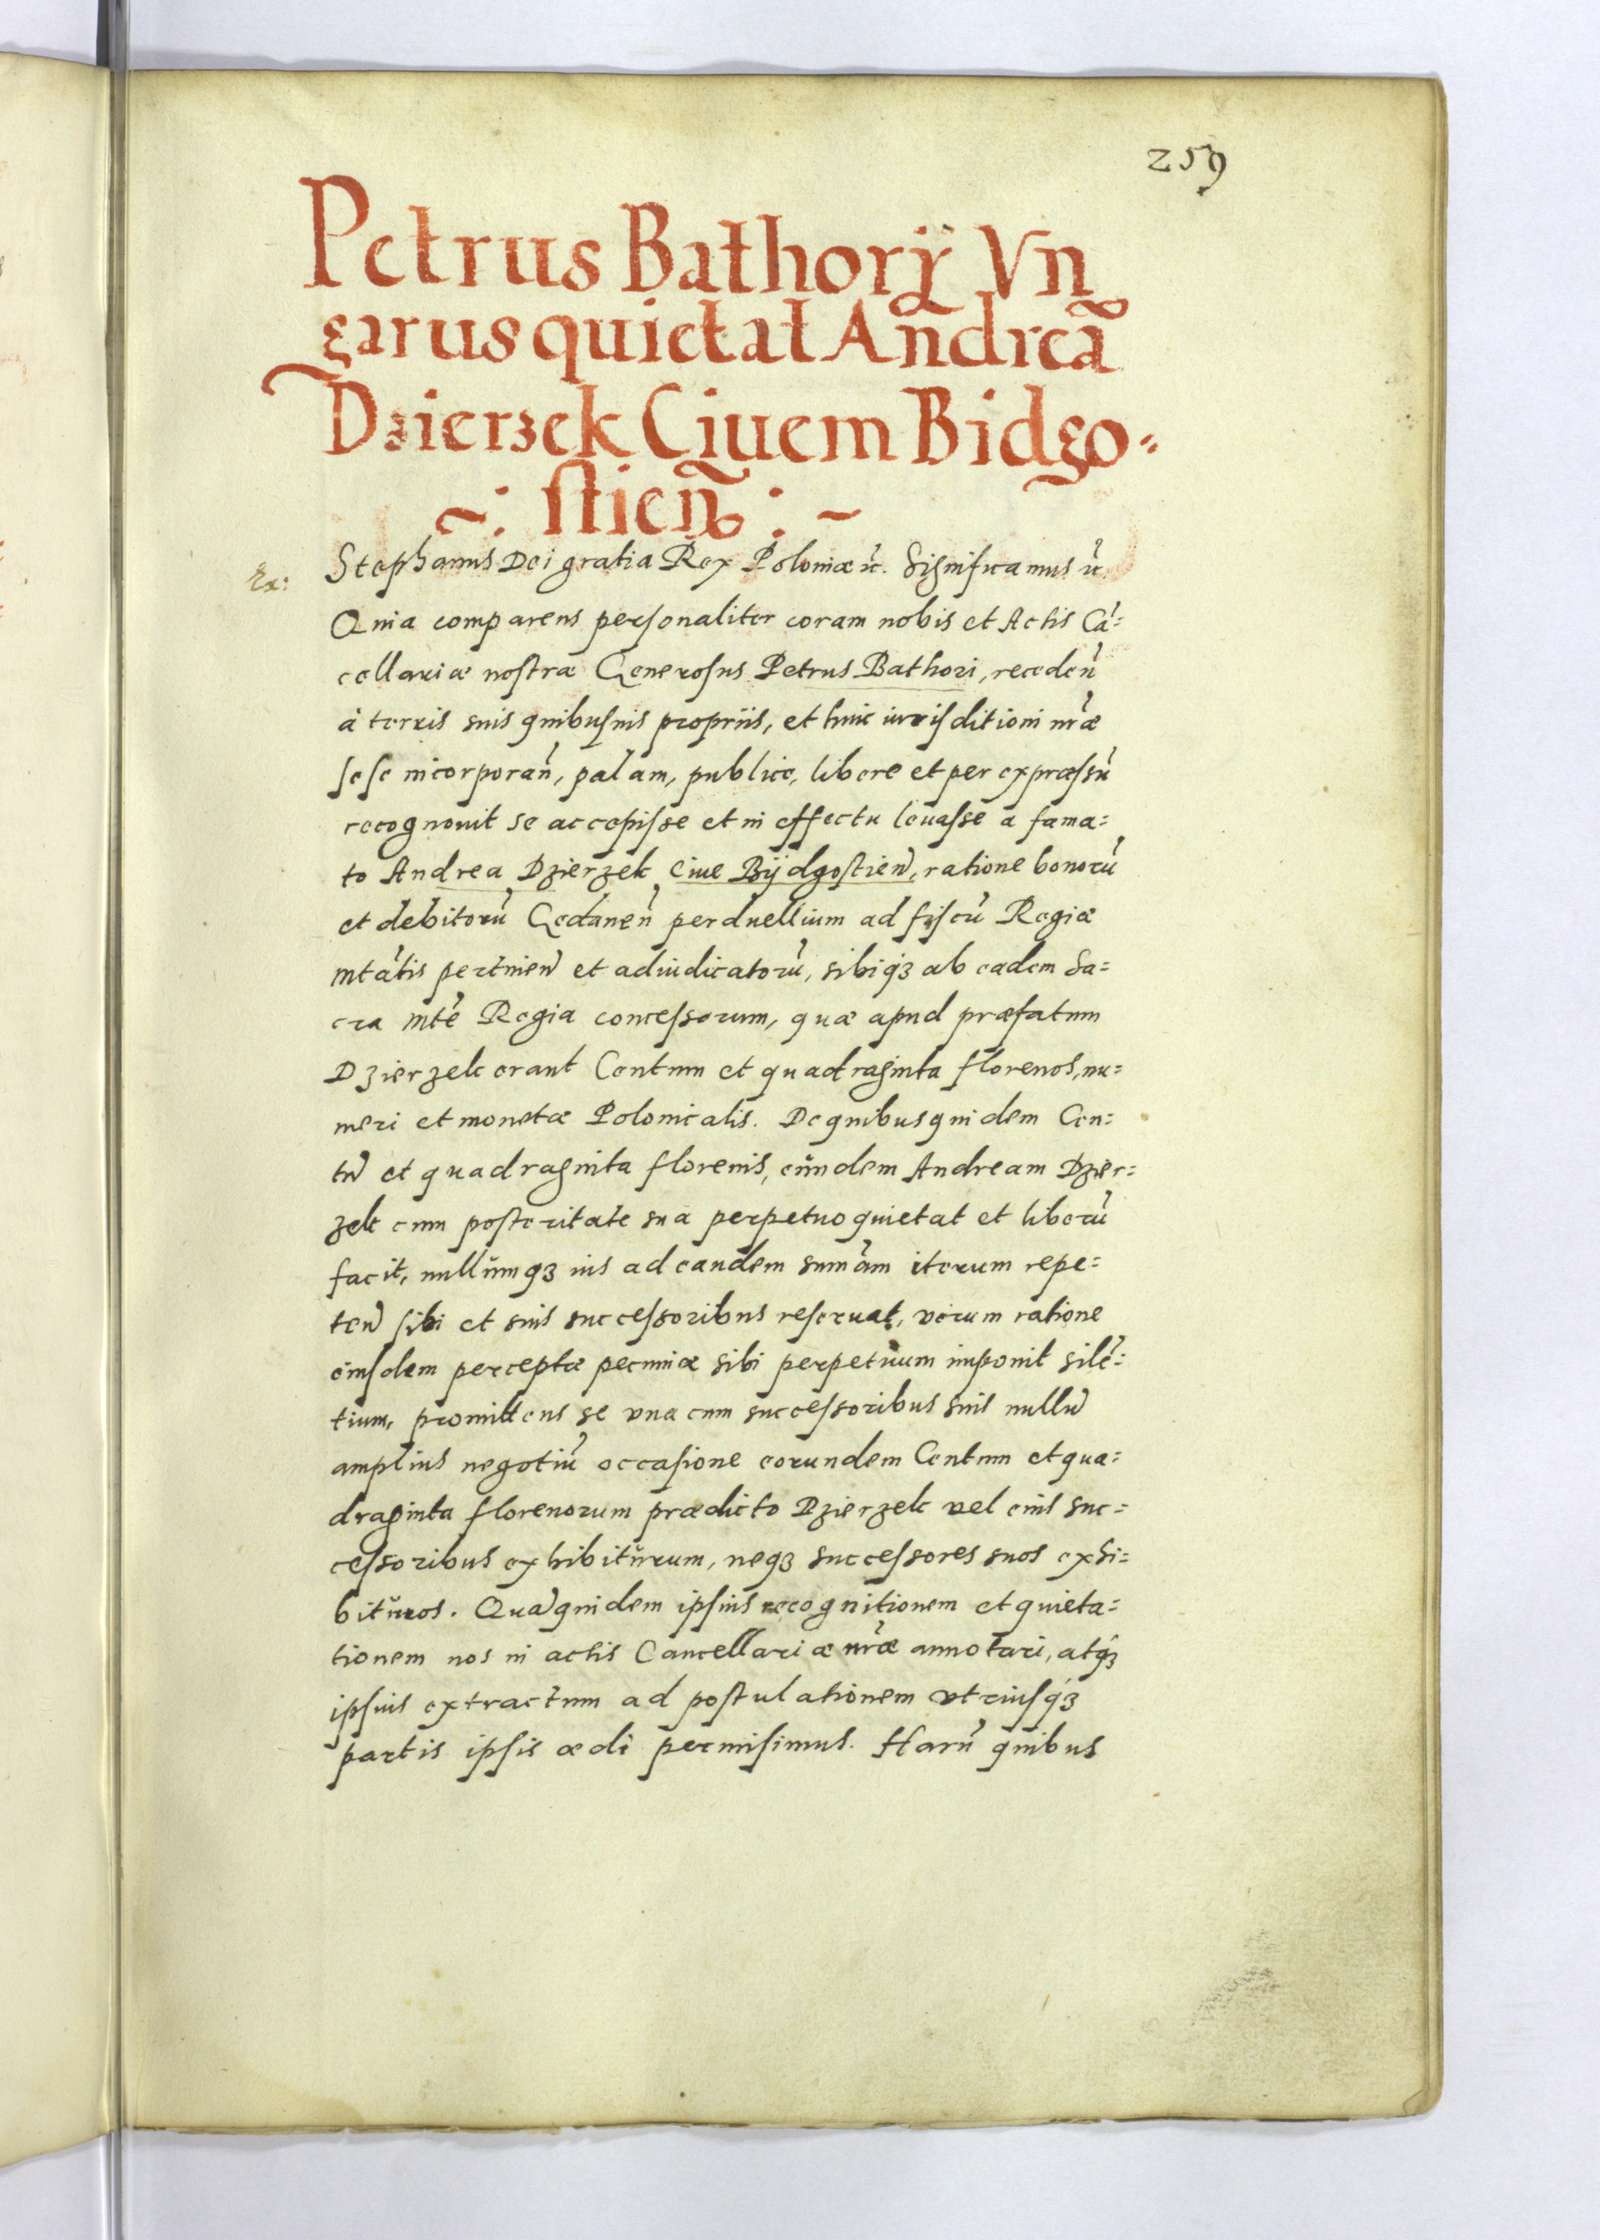 259
Petrus Bathorÿ Vn
garus quietat Andreã
Dzierzek Ciuem Bidgo=
~: stieñ :~
Ex:
Stephanus Dei gratia Rex Poloniæ ꝛc. Significamus ꝛc.
Quia comparens personaliter coram nobis et Actis Cã=
cellariæ nostræ Generosus Petrus Bathori, recedeñ
à terris suis quibusuis propriis, et huic iurisditioni nr̃æ
sese incorporañ, palam, publice, libere et per expræssũ
recognouit se accepisse et in effectu leuasse a fama=
to Andrea Dzierzek Ciue Bÿdgostieñ, ratione bonorũ
et debitorũ Gedaneñ perduellium ad fiscũ Regiæ
Mtãtis pertineñ et adiudicatorũ, sibiqꝫ ab eadem Sa=
cra Mtẽ Regia concessorum, quæ apud præfatum
Dzierzek erant Centum et quadraginta florenos, nu=
meri et monetæ Polonicalis. De quibusquidem Cen=
tũ et quadraginta florenis, eũndem Andream Dzier=
zek cum posteritate sua perpetuo quietat et liberũ
facit, nullũmqꝫ ius ad eandem sum̃am iterum repe=
teñ sibi et suis successoribus reseruat, verum ratione
eiusdem perceptæ pecuniæ sibi perpetuum imponit silẽ=
tium, promittens se vna cum successoribus suis nullũ
amplius negotiũ occasione eorundem Centum et qua=
draginta florenorum prædicto Dzierzek vel eius suc=
cessoribus exhibitũrum, neqꝫ successores suos exhi=
bitũros. Quãquidem ipsius recognitionem et quieta=
tionem nos in actis Cancellariæ nr̃æ annotari, atqꝫ
ipsius extractum ad postulationem vtriusqꝫ
partis ipsis ædi permisimus. Harũ quibus